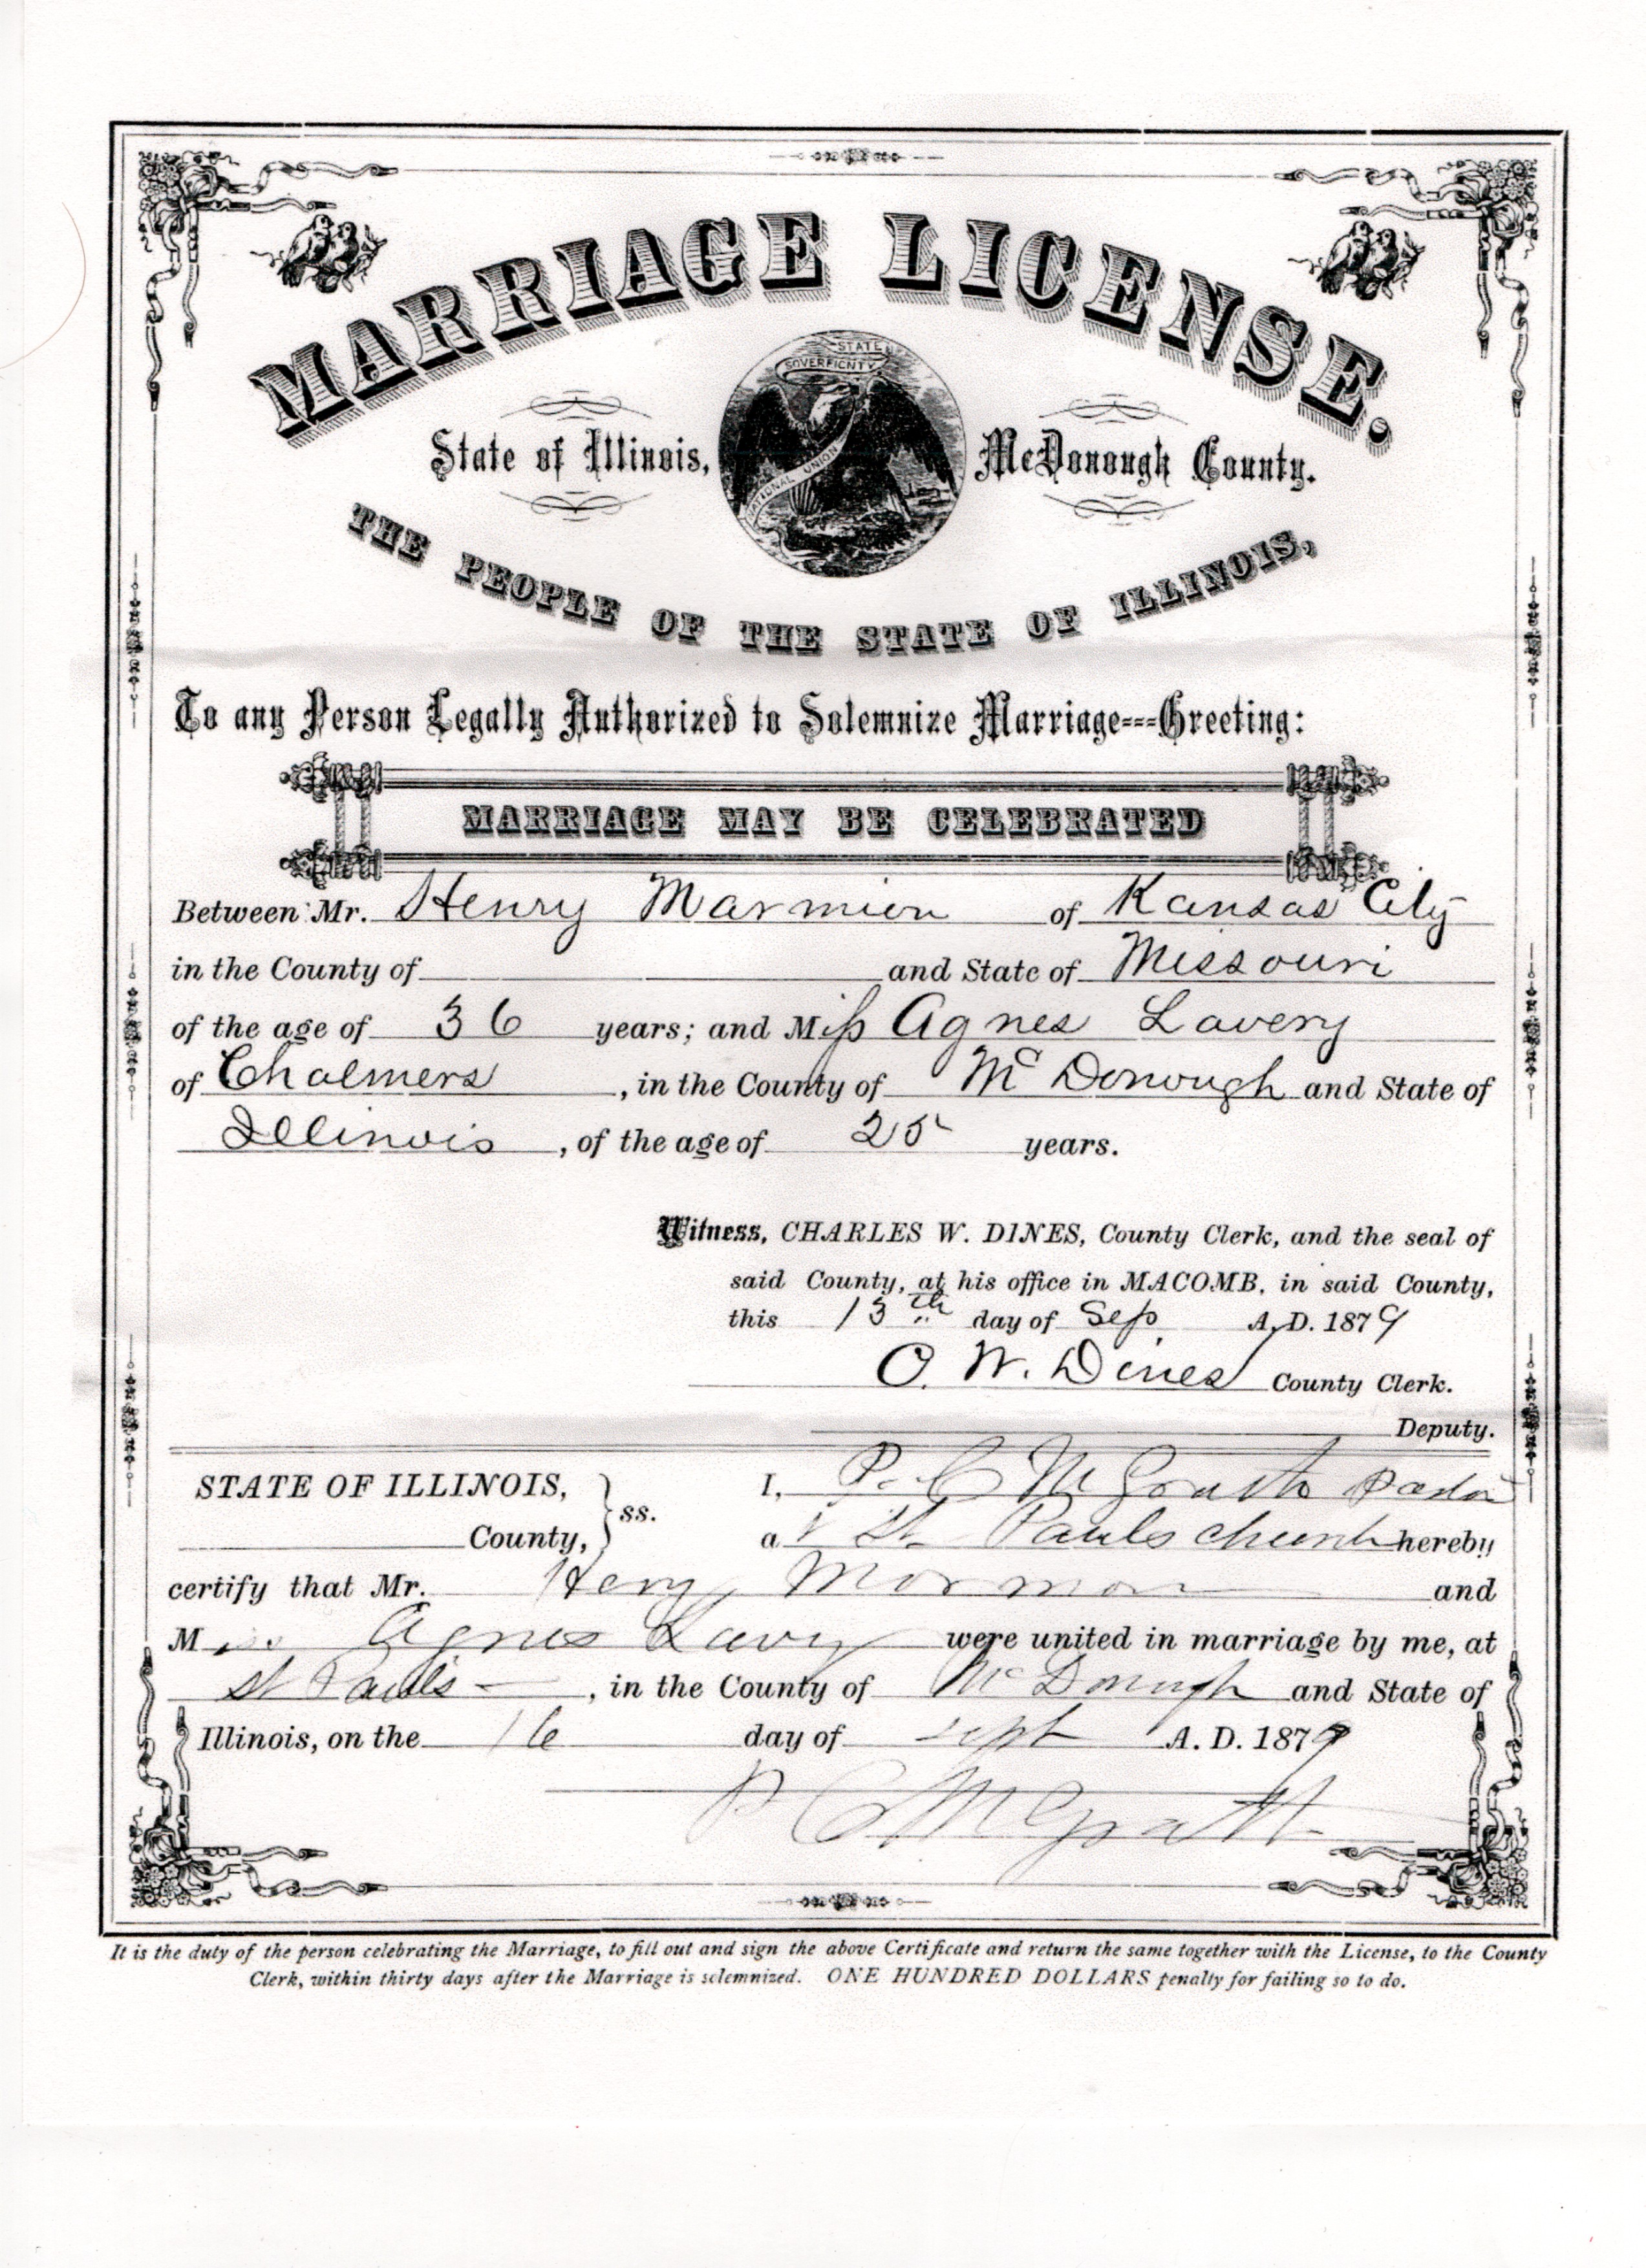 MARRIAGE LICENSE.
STATE
SOVEREIGNTY
NATIONAL UNION
State of Illinois, McDonough County.
THE PEOPLE OF THE STATE OF ILLINOIS,
To any Person Legally Authorized to Solemnize Marriage---Greeting:
MARRIAGE MAY BE CELEBRATED
Between Mr. Henry Marmion of Kansas City
in the County of and State of Missouri
of the age of 36 years; and Miss Agnes Lavery
of Chalmers, in the County of McDonough and State of
Illinois, of the age of 25 years.
Witness, CHARLES W. DINES, County Clerk, and the seal of
said County, at his office in MACOMB, in said County,
this 13th day of Sep A. D. 1879
C. W. Dines County Clerk.
Deputy.
STATE OF ILLINOIS, } ss. I, P. C McGrath Pastor
County, a St. Pauls church hereby
certify that Mr. Henry Mormon and
Miss Agnes Lavry were united in marriage by me, at
St Pauls, in the County of McDonugh and State of
Illinois, on the 16 day of Sept A. D. 1879
P C McGrath
It is the duty of the person celebrating the Marriage, to fill out and sign the above Certificate and return the same together with the License, to the County
Clerk, within thirty days after the Marriage is solemnized. ONE HUNDRED DOLLARS penalty for failing so to do.